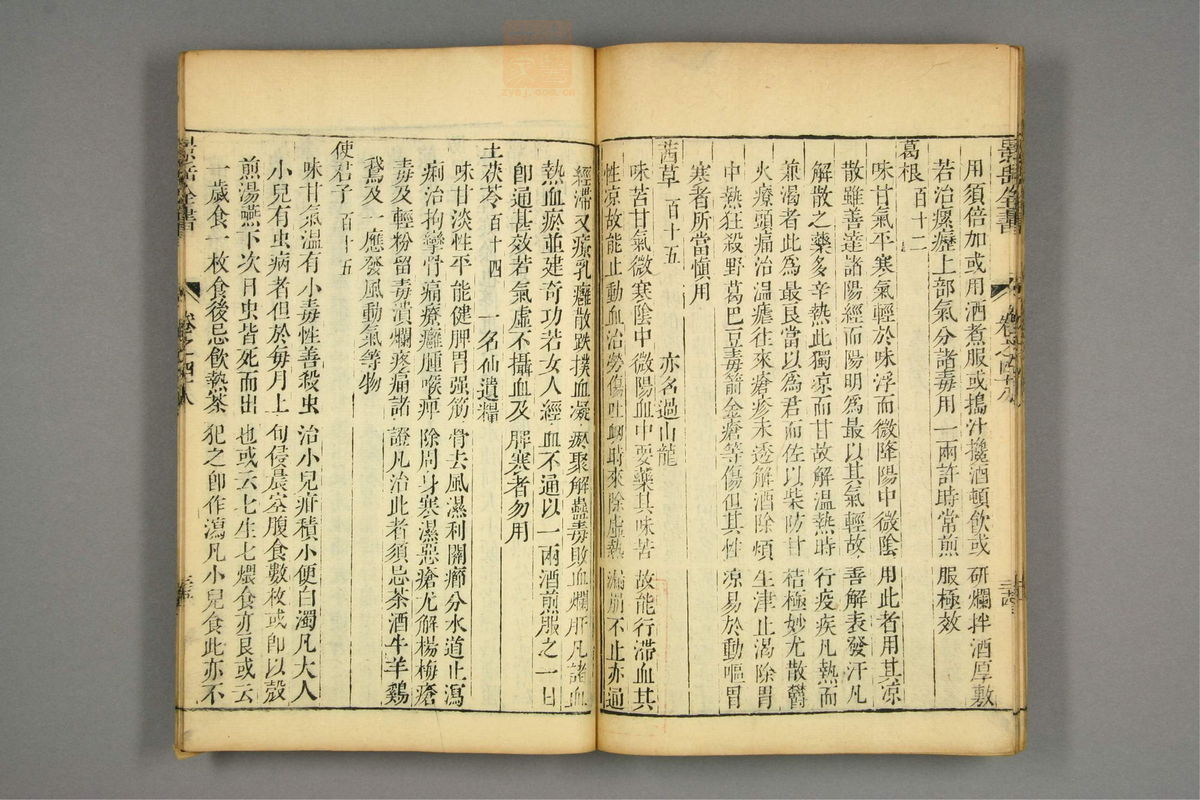 景岳全書
卷之四十八
用須倍加或用酒煮服或搗汁攙酒頓飲或研爛拌酒厚敷
若治瘰癧上部氣分諸毒用一兩許時常煎服極效
葛根 百十二
味甘氣平寒氣輕於味浮而微降陽中微陰用此者用其凉
散雖善達諸陽經而陽明為最以其氣輕故善解表發汗凡
解散之藥多辛熱此獨凉而甘故解温熱時行疫疾凡熱而
兼渴者此為最良當以為君而佐以柴防甘桔極妙尤散鬱
火療頭痛治温瘧往來瘡疹未透解酒除煩生津止渴除胃
中熱狂殺野葛巴豆毒箭金瘡等傷但其性凉易於動嘔胃
寒者所當慎用
茜草 百十五 亦名過山龍
味苦甘氣微寒陰中微陽血中要藥其味苦故能行滯血其
性凉故能止動血治勞傷吐衂時來除虚熱漏崩不止亦通
經滯又療乳癰散跌撲血凝瘀聚解蠱毒敗血爛肝凡諸血
熱血瘀並建奇功若女人經血不通以一兩酒煎服之一日
卽通甚效若氣虛不攝血及脾寒者勿用
土茯苓 百十四 一名仙遺糧
味甘淡性平能健脾胃强筋骨去風濕利關癤分水道止瀉
痢治拘攣骨痛療癰腫喉痺除周身寒濕惡瘡尤解楊梅瘡
毒及輕粉留毒潰爛疼痛諸證凡治此者須忌茶酒牛羊鷄
鵞及一應發風動氣等物
使君子 百十五
味甘氣温有小毒性善殺虫治小兒疳積小便白濁凡大人
小兒有虫病者但於每月上旬侵晨空腹食數枚或卽以殼
煎湯嚥下次日虫皆死而出也或云七生七煨食亦良或云
一歲食一枚食後忌飲熱茶犯之卽作瀉凡小兒食此亦不
景岳全書
卷之四十八